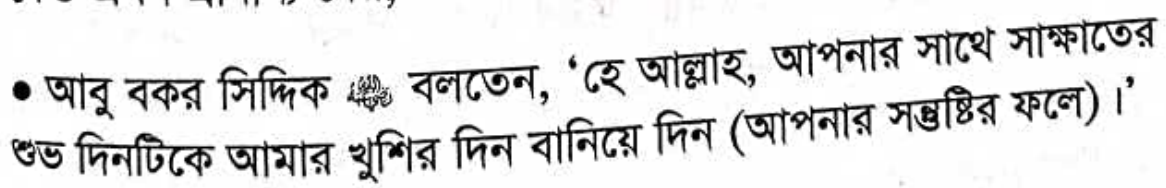 • আবু বকর সিদ্দিক বলতেন, ‘হে আল্লাহ, আপনার সাথে সাক্ষাতের
শুভ দিনটিকে আমার খুশির দিন বানিয়ে দিন (আপনার সন্তুষ্টির ফলে) ।’